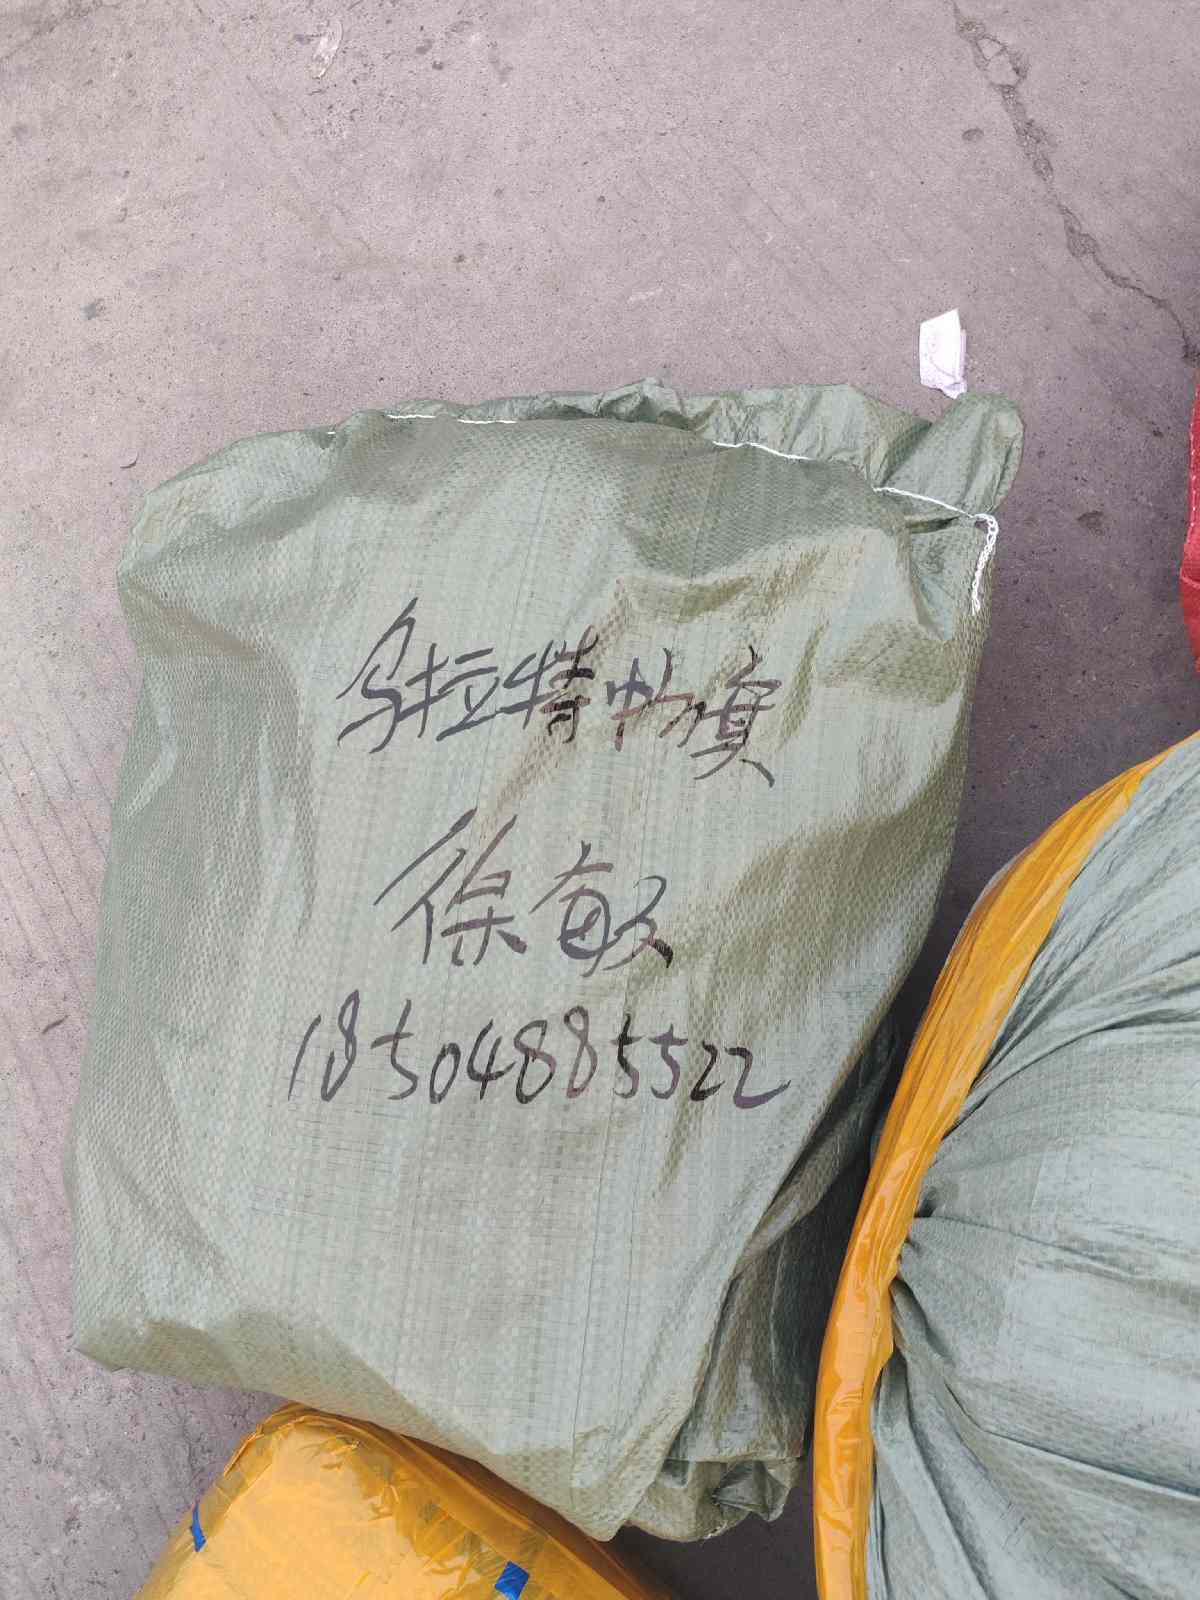 乌拉特中旗
徐敏
18504885522